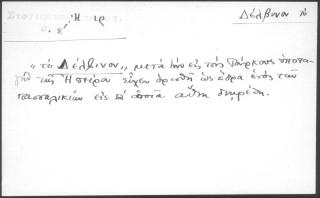 Ἤπ ιρ
Δέλβινον τό
σ. 5'
"τὸ Δέλβινον,, μετὰ τὴν εἰς τοὺς Τούρκους ὑποτα-
γὴν τῆς Ἠπείρου εἶχεν ὁρισθῆ ὡς ἕδρα ἑνὸς τῶν
πασαλικίων εἰς ἃ ὁποῖα αὕτη διῃρέθη.